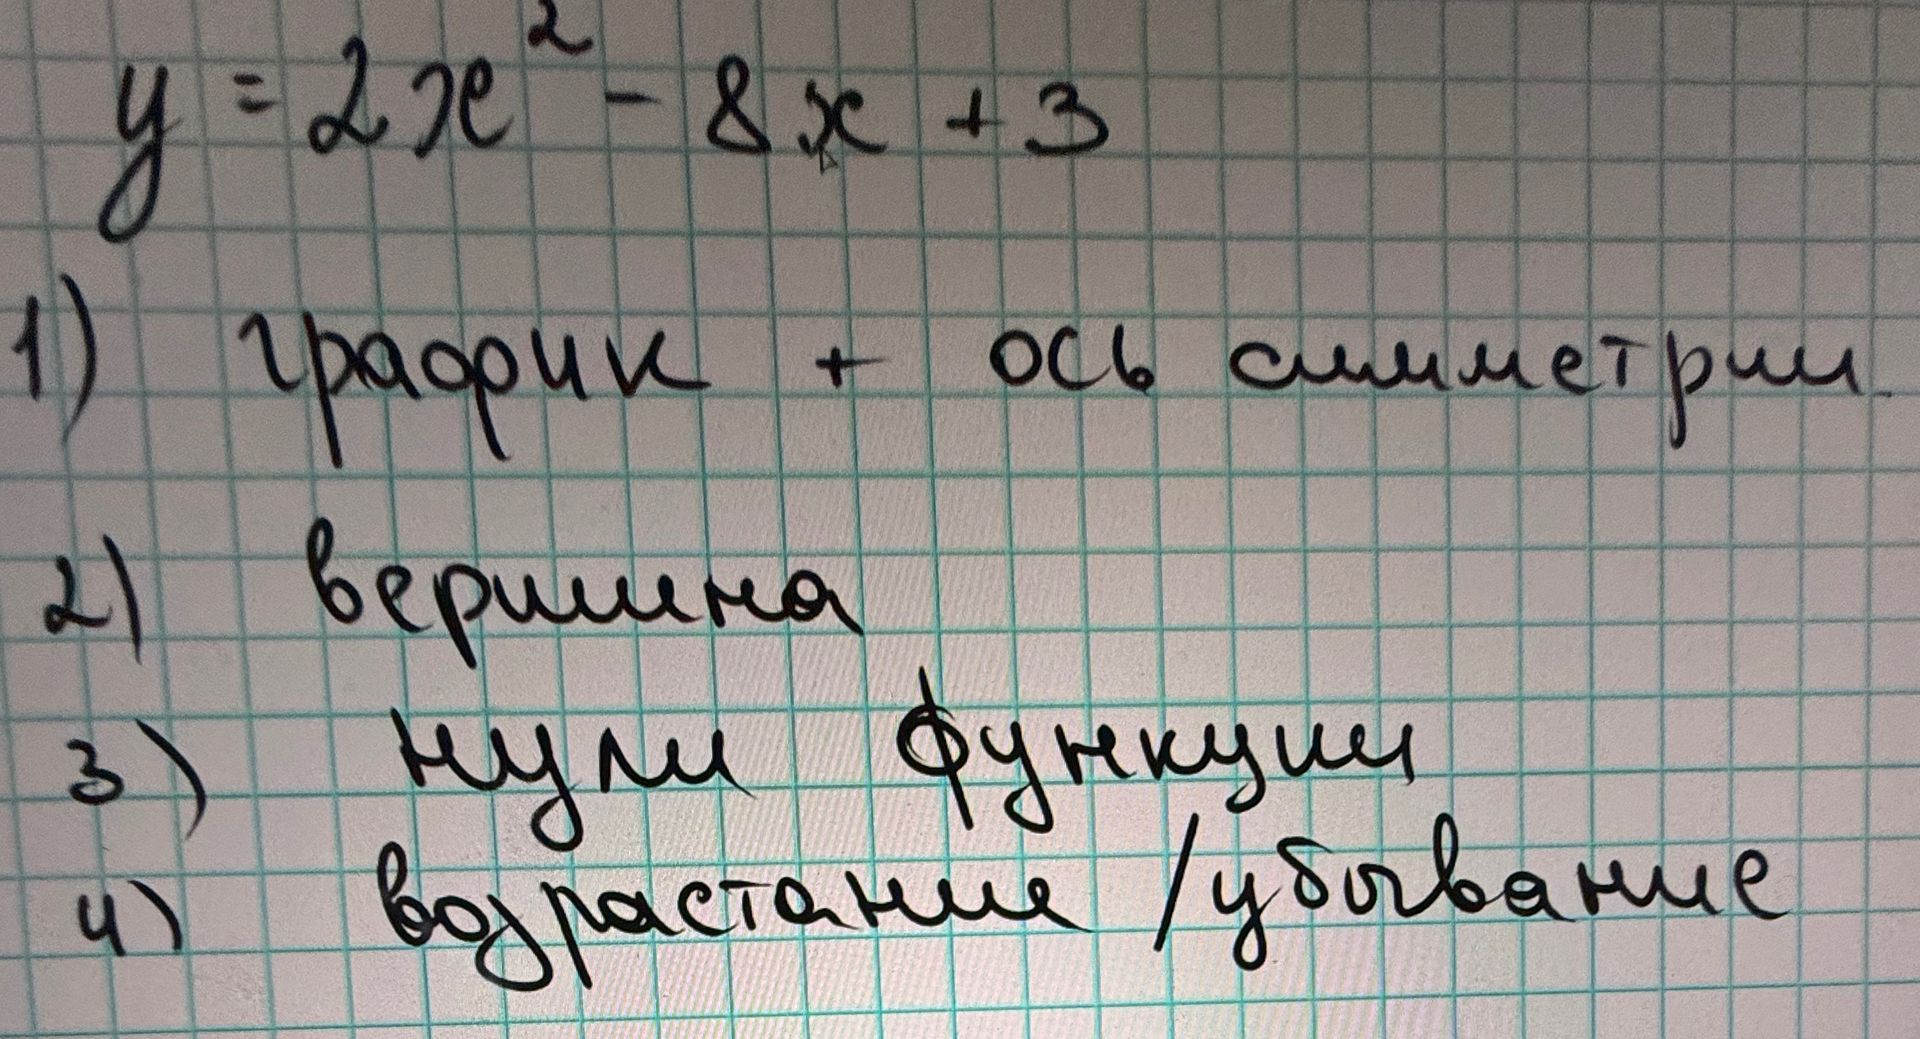 y = 2x² - 8x + 3
1) график + ось симметрии
2) вершина
3) нули функции
4) возрастание / убывание